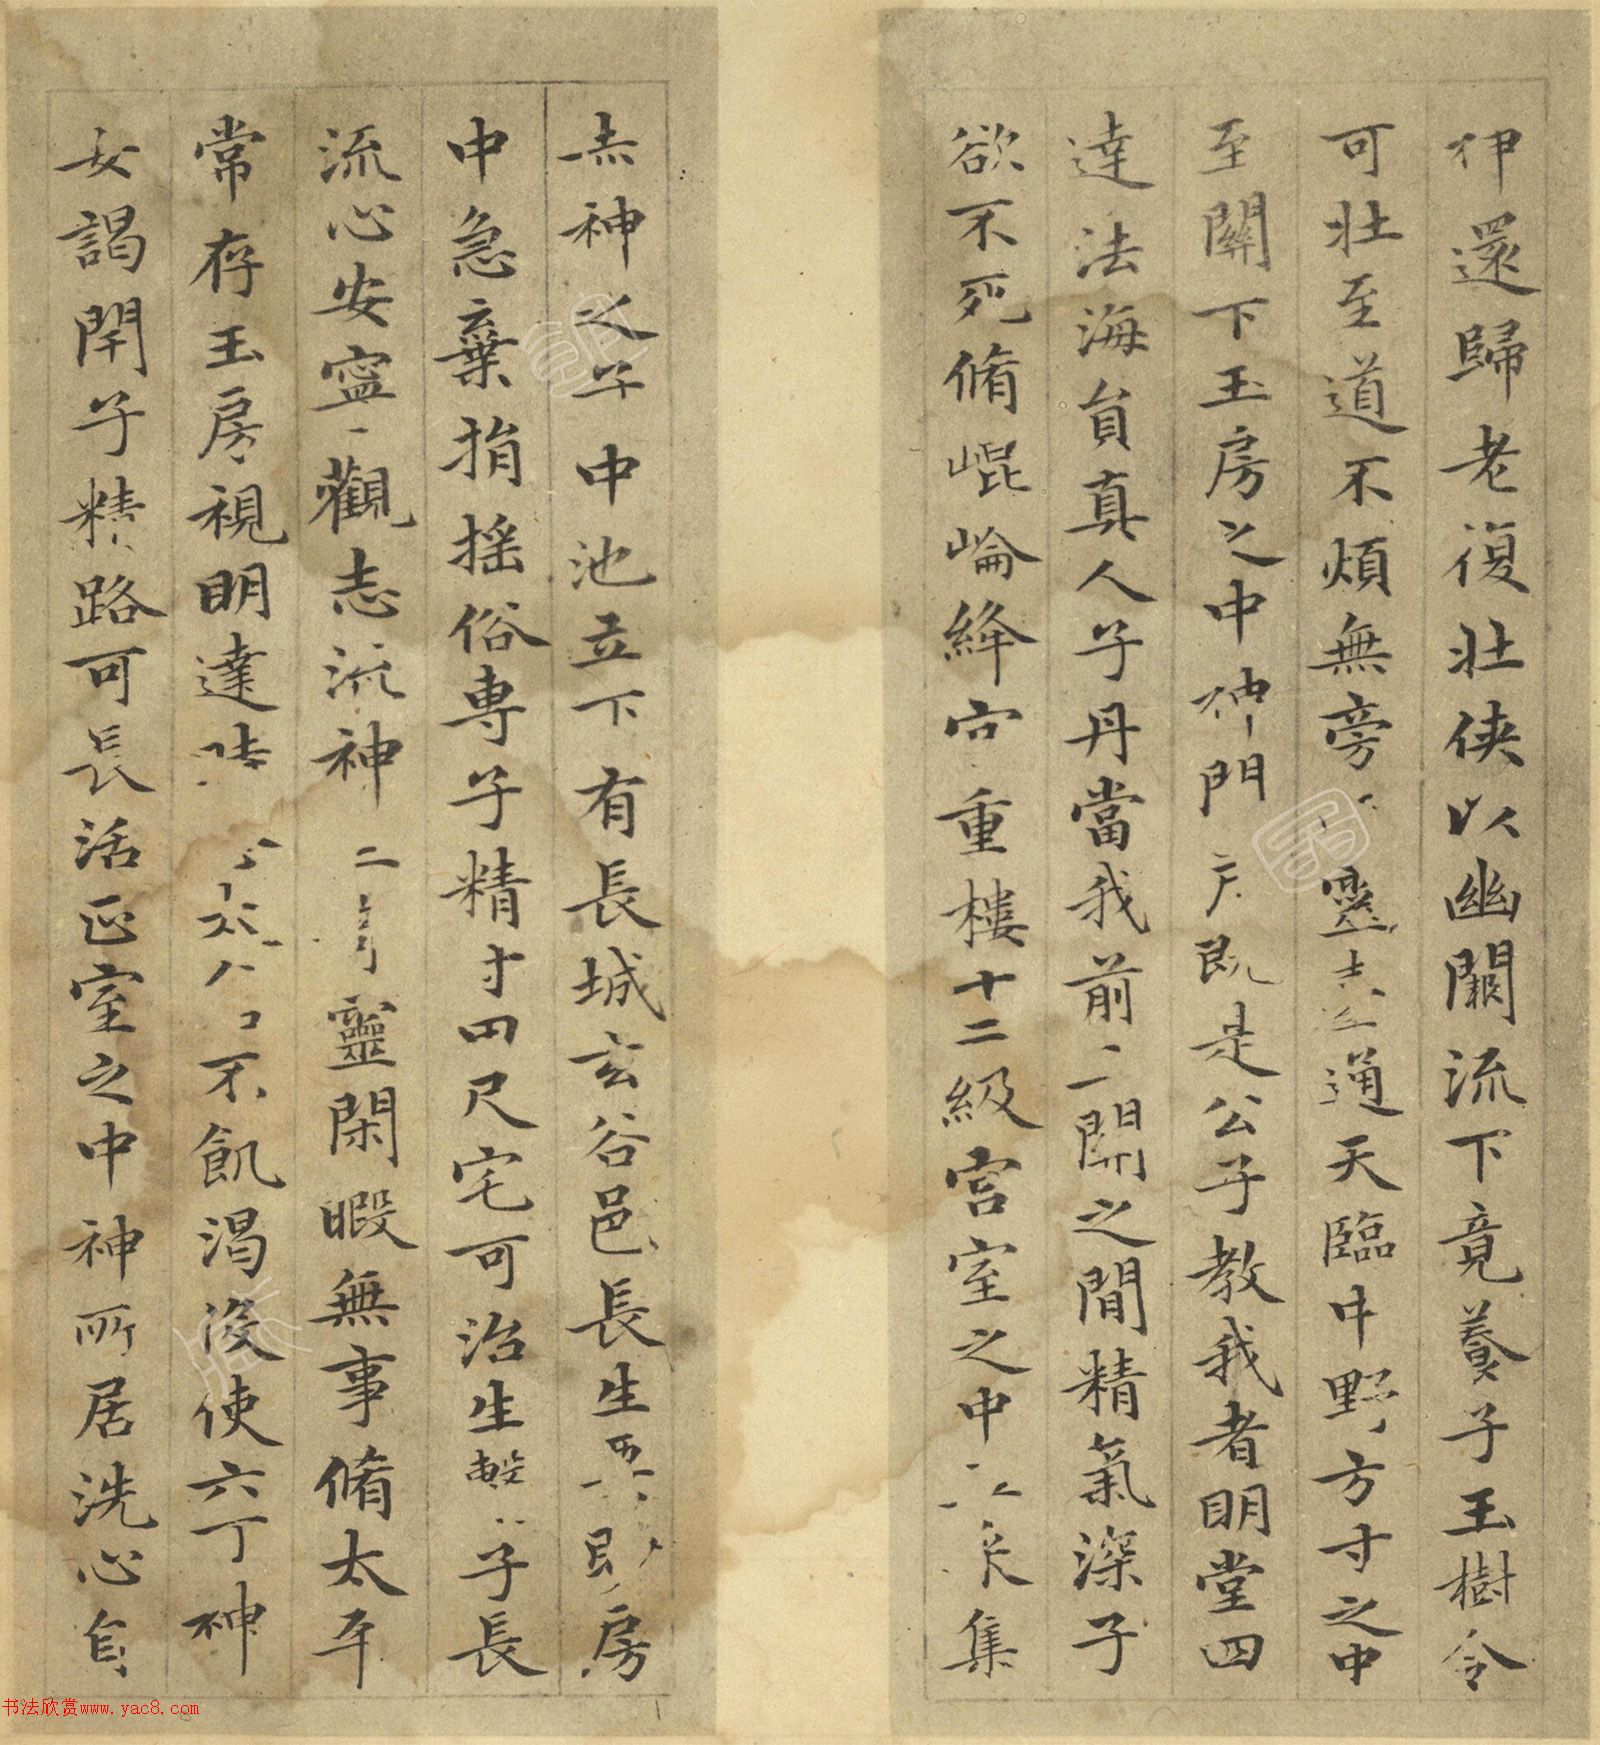 伊還歸老復壯侠以幽闕流下竟養子玉樹令
可壯至道不煩無旁靈通天臨中野方寸之中
至關下玉房之中神門戶既是公子教我者明堂四
達法海員真人子丹當我前二關之間精氣深子
欲不死脩崐崘絳宫重樓十二級宮室之中集
赤神之子中池立下有長城玄谷邑長生房
中急棄捐摇俗專子精寸田尺宅可治生子長
流心安寧觀志流神靈閑暇無事脩太平
常存玉房視明達不飢渴役使六丁神
女謁閇子精路可長活正室之中神所居洗心自
书法欣赏www.yac8.com